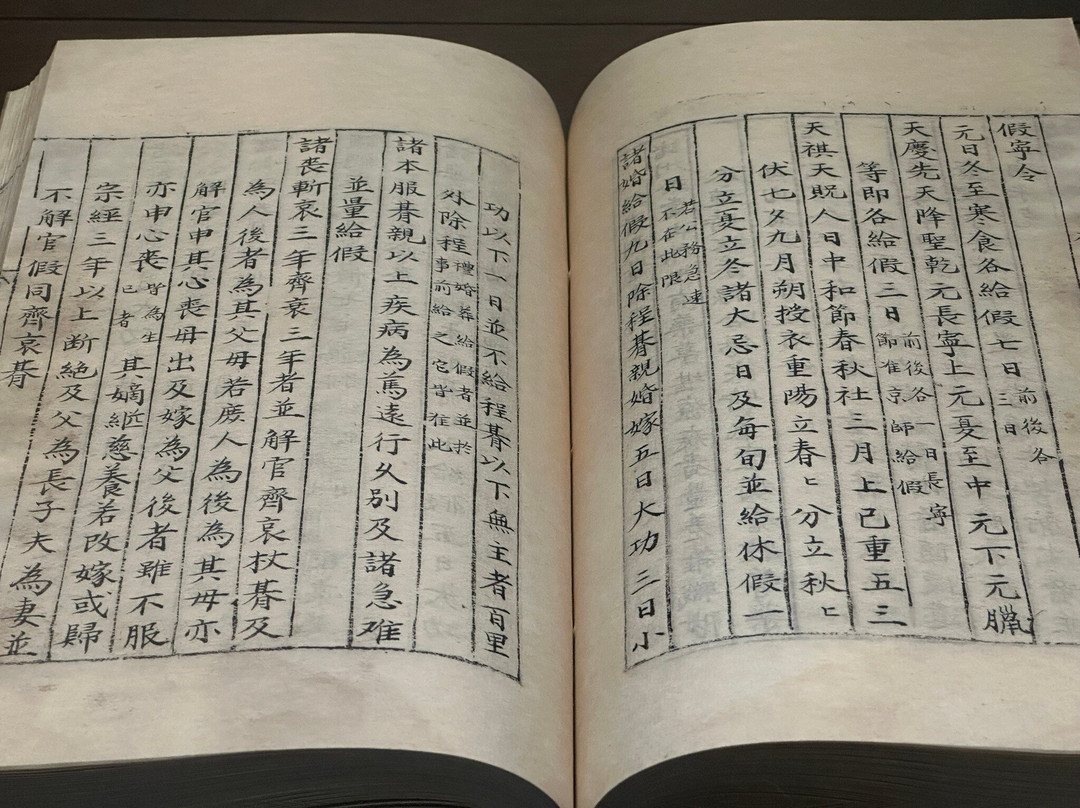 假寧令
元日冬至寒食各給假七日前後各三日
天慶先天降聖乾元長寧上元夏至中元下元臘
等即各給假三日前後各一日長寧節准京師給假
天祺天貺人日中和節春秋社三月上巳重五三
伏七夕九月朔授衣重陽立春ヒ分立秋ヒ
分立夏立冬諸大忌日及每旬並給休假一
日若公務急速不在此限
諸婚給假九日除程朞親婚嫁五日大功三日小
功以下一日並不給程朞以下無主者百里
外除程禮婚葬給假者並於事前給之它皆准此
諸本服朞親以上疾病為篤遠行久別及諸急难
並量給假
諸丧斬衰三年齊衰三年者並解官齊哀杖朞及
為人後者為其父母若庶人為後為其母亦
解官申其心喪母出及嫁為父後者雖不服
亦申心丧皆為生己者其嫡継慈養若改嫁或歸
宗經三年以上斷絶及父為長子夫為妻並
不解官假同齊哀朞